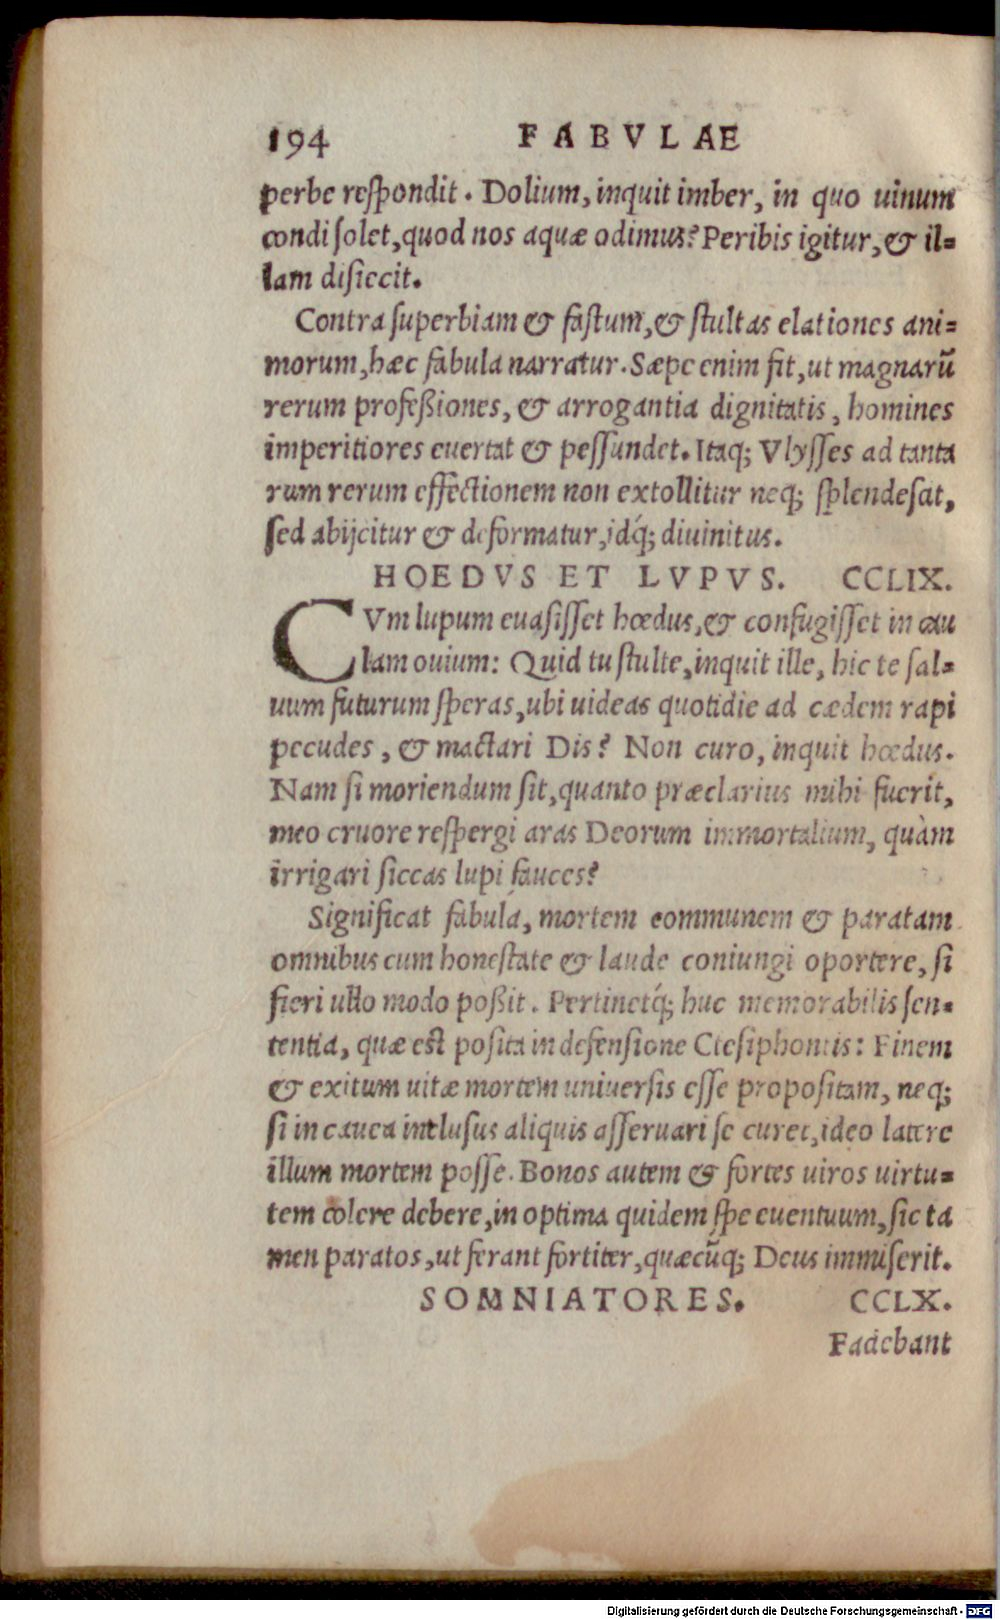 194 FABVLAE
perbe respondit. Dolium, inquit imber, in quo uinum
condi solet, quod nos aquæ odimus? Peribis igitur, & il=
lam disiecit.
Contra superbiam & fastum, & stultas elationes ani=
morum, hæc fabula narratur. Sæpe enim fit, ut magnarũ
rerum profeßiones, & arrogantia dignitatis, homines
imperitiores euertat & pessundet. Itaq; Vlysses ad tanta
rum rerum effectionem non extollitur neq; splendescat,
sed abijcitur & deformatur, idq́; diuinitus.
HOEDVS ET LVPVS. CCLIX.
CVm lupum euasisset hœdus, & confugisset in cau
lam ouium: Quid tu stulte, inquit ille, hic te sal=
uum futurum speras, ubi uideas quotidie ad cædem rapi
pecudes, & mactari Dis? Non curo, inquit hœdus.
Nam si moriendum sit, quanto præclarius mihi fuerit,
meo cruore respergi aras Deorum immortalium, quàm
irrigari siccas lupi fauces?
Significat fabula, mortem communem & paratam
omnibus cum honestate & laude coniungi oportere, si
fieri ullo modo poßit. Pertinetq́; huc memorabilis sen=
tentia, quæ est posita in defensione Ctesiphontis: Finem
& exitum uitæ mortem uniuersis esse propositam, neq;
si in cauea inclusus aliquis asseruari se curet, ideo latere
illum mortem posse. Bonos autem & fortes uiros uirtu=
tem colere debere, in optima quidem spe euentuum, sic ta
men paratos, ut ferant fortiter, quæcũq; Deus immiserit.
SOMNIATORES. CCLX.
Fadebant
Digitalisierung gefördert durch die Deutsche Forschungsgemeinschaft - DFG